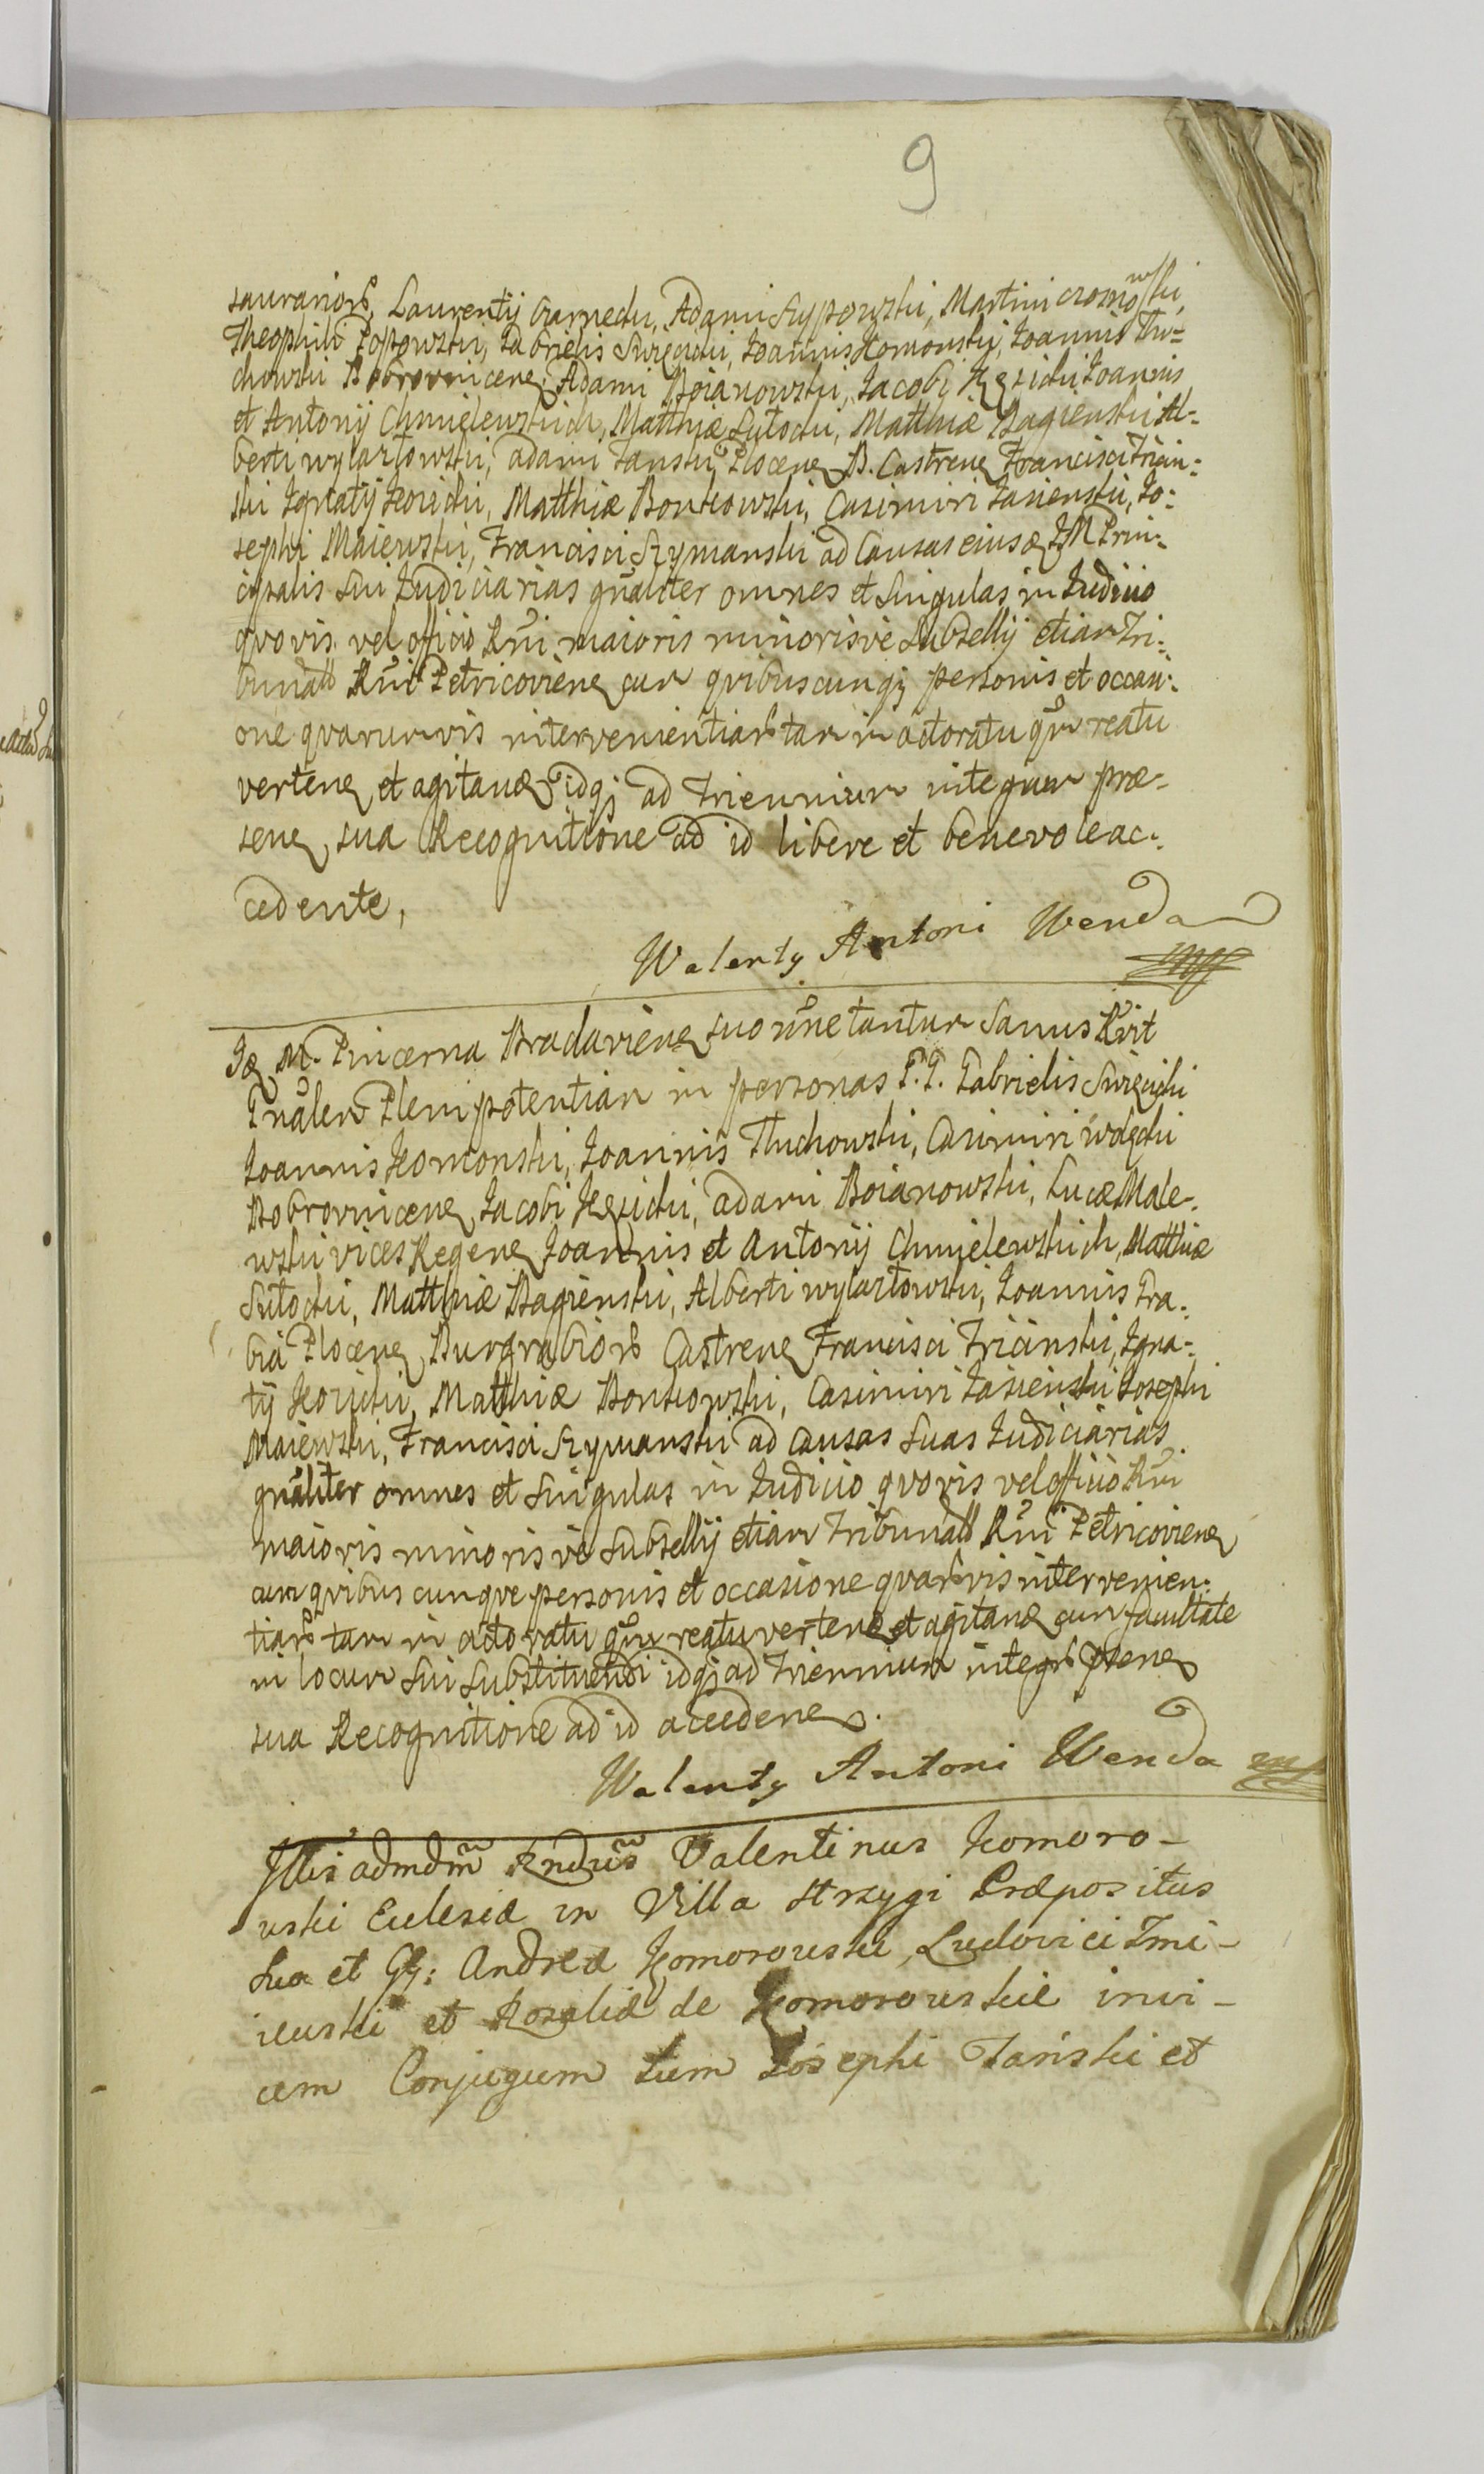 9
saurariorb, Laurentij Czarnecki, Adami Sypowski, Martini cromowski,
Theophili Popowski, Gabrielis Święcicki, Ioannis Komonski, Ioannis Tłu-
chowski Bobrovnicens, Adami Boianowski, Iacobi Kęsicki Ioannis
et Antonij Chmielewskich, Matthiæ Sutocki, Matthiæ Bagienski Al-
berti wylazłowski, adami Tanski Plocens B. Castrens Francisci Trian-
ski Ignatij Kosicki, Matthiæ Bonkowski, Casimiri Iasienski, Io-
sephi Maiewski, Francisci Szymanski ad Causas eiusd IM Prin-
cipalis sui Iudiciarias gnaliter omnes et singulas in Iudicio
qvovis vel officio Rni maioris minorisve Subsellij etiam Tri-
bunalb Rni Petricoviens cum qvibuscunq personis et occasi-
one qvarumvis intervenientiarb tam in actoratu qm reatu
vertens et agitand idq ad Triennium integrum præ-
sens sua Recognitione ad id libere et benevole ac-
cedente,
Walenty Antoni Wenda
mpp
Id M. Pincerna Bradaviens suo nne tantum Sanus Rvit
Gnalem Plenipotentiam in personas G. G. Gabrielis Święcicki
Ioannis Komonski, Ioannis Tłuchowski, Casimiri wolęcki
Bobrovnicens Iacobi Kęsicki, adami Boianowski, Lucæ Male-
wski vices Regens Ioannis et Antonij Chmielewskich, Matthiæ
Sutocki, Matthiæ Bagienski, Alberti wylazłowski, Ioannis Gra-
bia Plocens Burgrabiorb Castrens Francisci Trianski, Igna-
tij Kosicki, Matthiæ Bonkowski, Casimiri Iasienski Iosephi
Maiewski, Francisci Szymanski ad Causas suas Iudiciarias
gnaliter omnes et singulas in Iudicio qvovis vel officio Rni
maioris minorisve subsellij etiam Tribunalb Rni Petricoviens
cum qvibus cunqve personis et occasione qvarbvis intervenien-
tiarb tam in actoratu qm reatu vertend et agitand cum facultate
in locum sui substituendi idq ad Triennium integrb psens
sua Recognitione ad id accedens.
Walenty Antoni Wenda mp
Illis admdm Rndus Valentinus Komoro-
wski Eclesiæ in Villa Strzygi Præpositus
suo et GG: Andreæ Komorowski, Ludovici Tmi-
iewski et Rosaliæ de Komorowskie invi-
cem Conjugum tum Iosephi Tański et